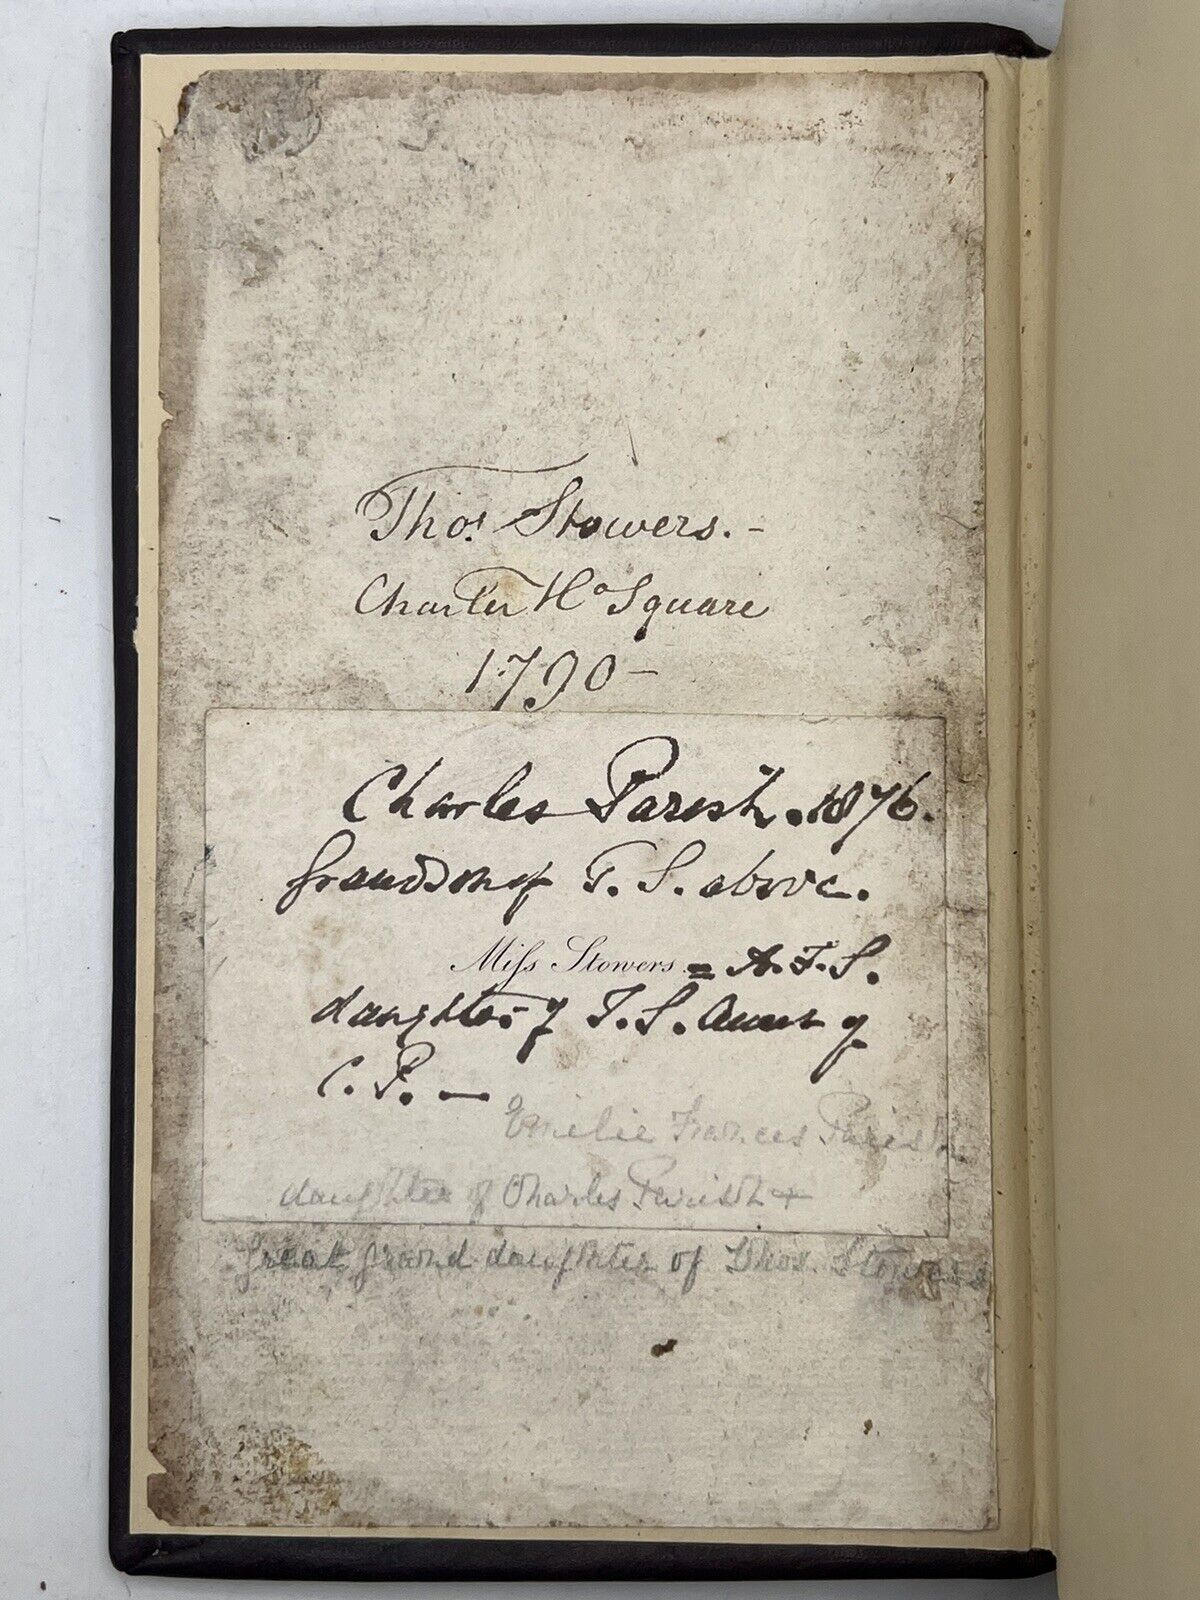 Thos. Stowers. -
Charter Ho Square
1790 -
Charles Parish. 1876.
Grandson of T. S. above.
Miſs Stowers = A. F. S.
daughter of T. S. Aunt of
C. P. —
Emilie Frances Parish
daughter of Charles Parish +
Great grand daughter of Thos. Stowers